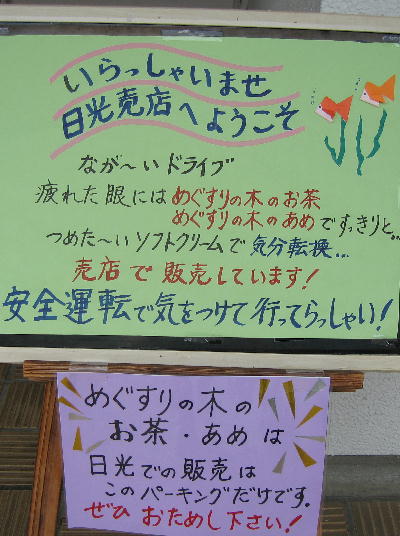 いらっしゃいませ
日光売店へようこそ
なが〜いドライブ
疲れた眼にはめぐすりの木のお茶
めぐすりの木のあめですっきりと...
つめた〜いソフトクリームで気分転換...
売店で販売しています!
安全運転で気をつけて行ってらっしゃい!
めぐすりの木の
お茶・あめは
日光での販売は
このパーキングだけです。
ぜひおためし下さい!